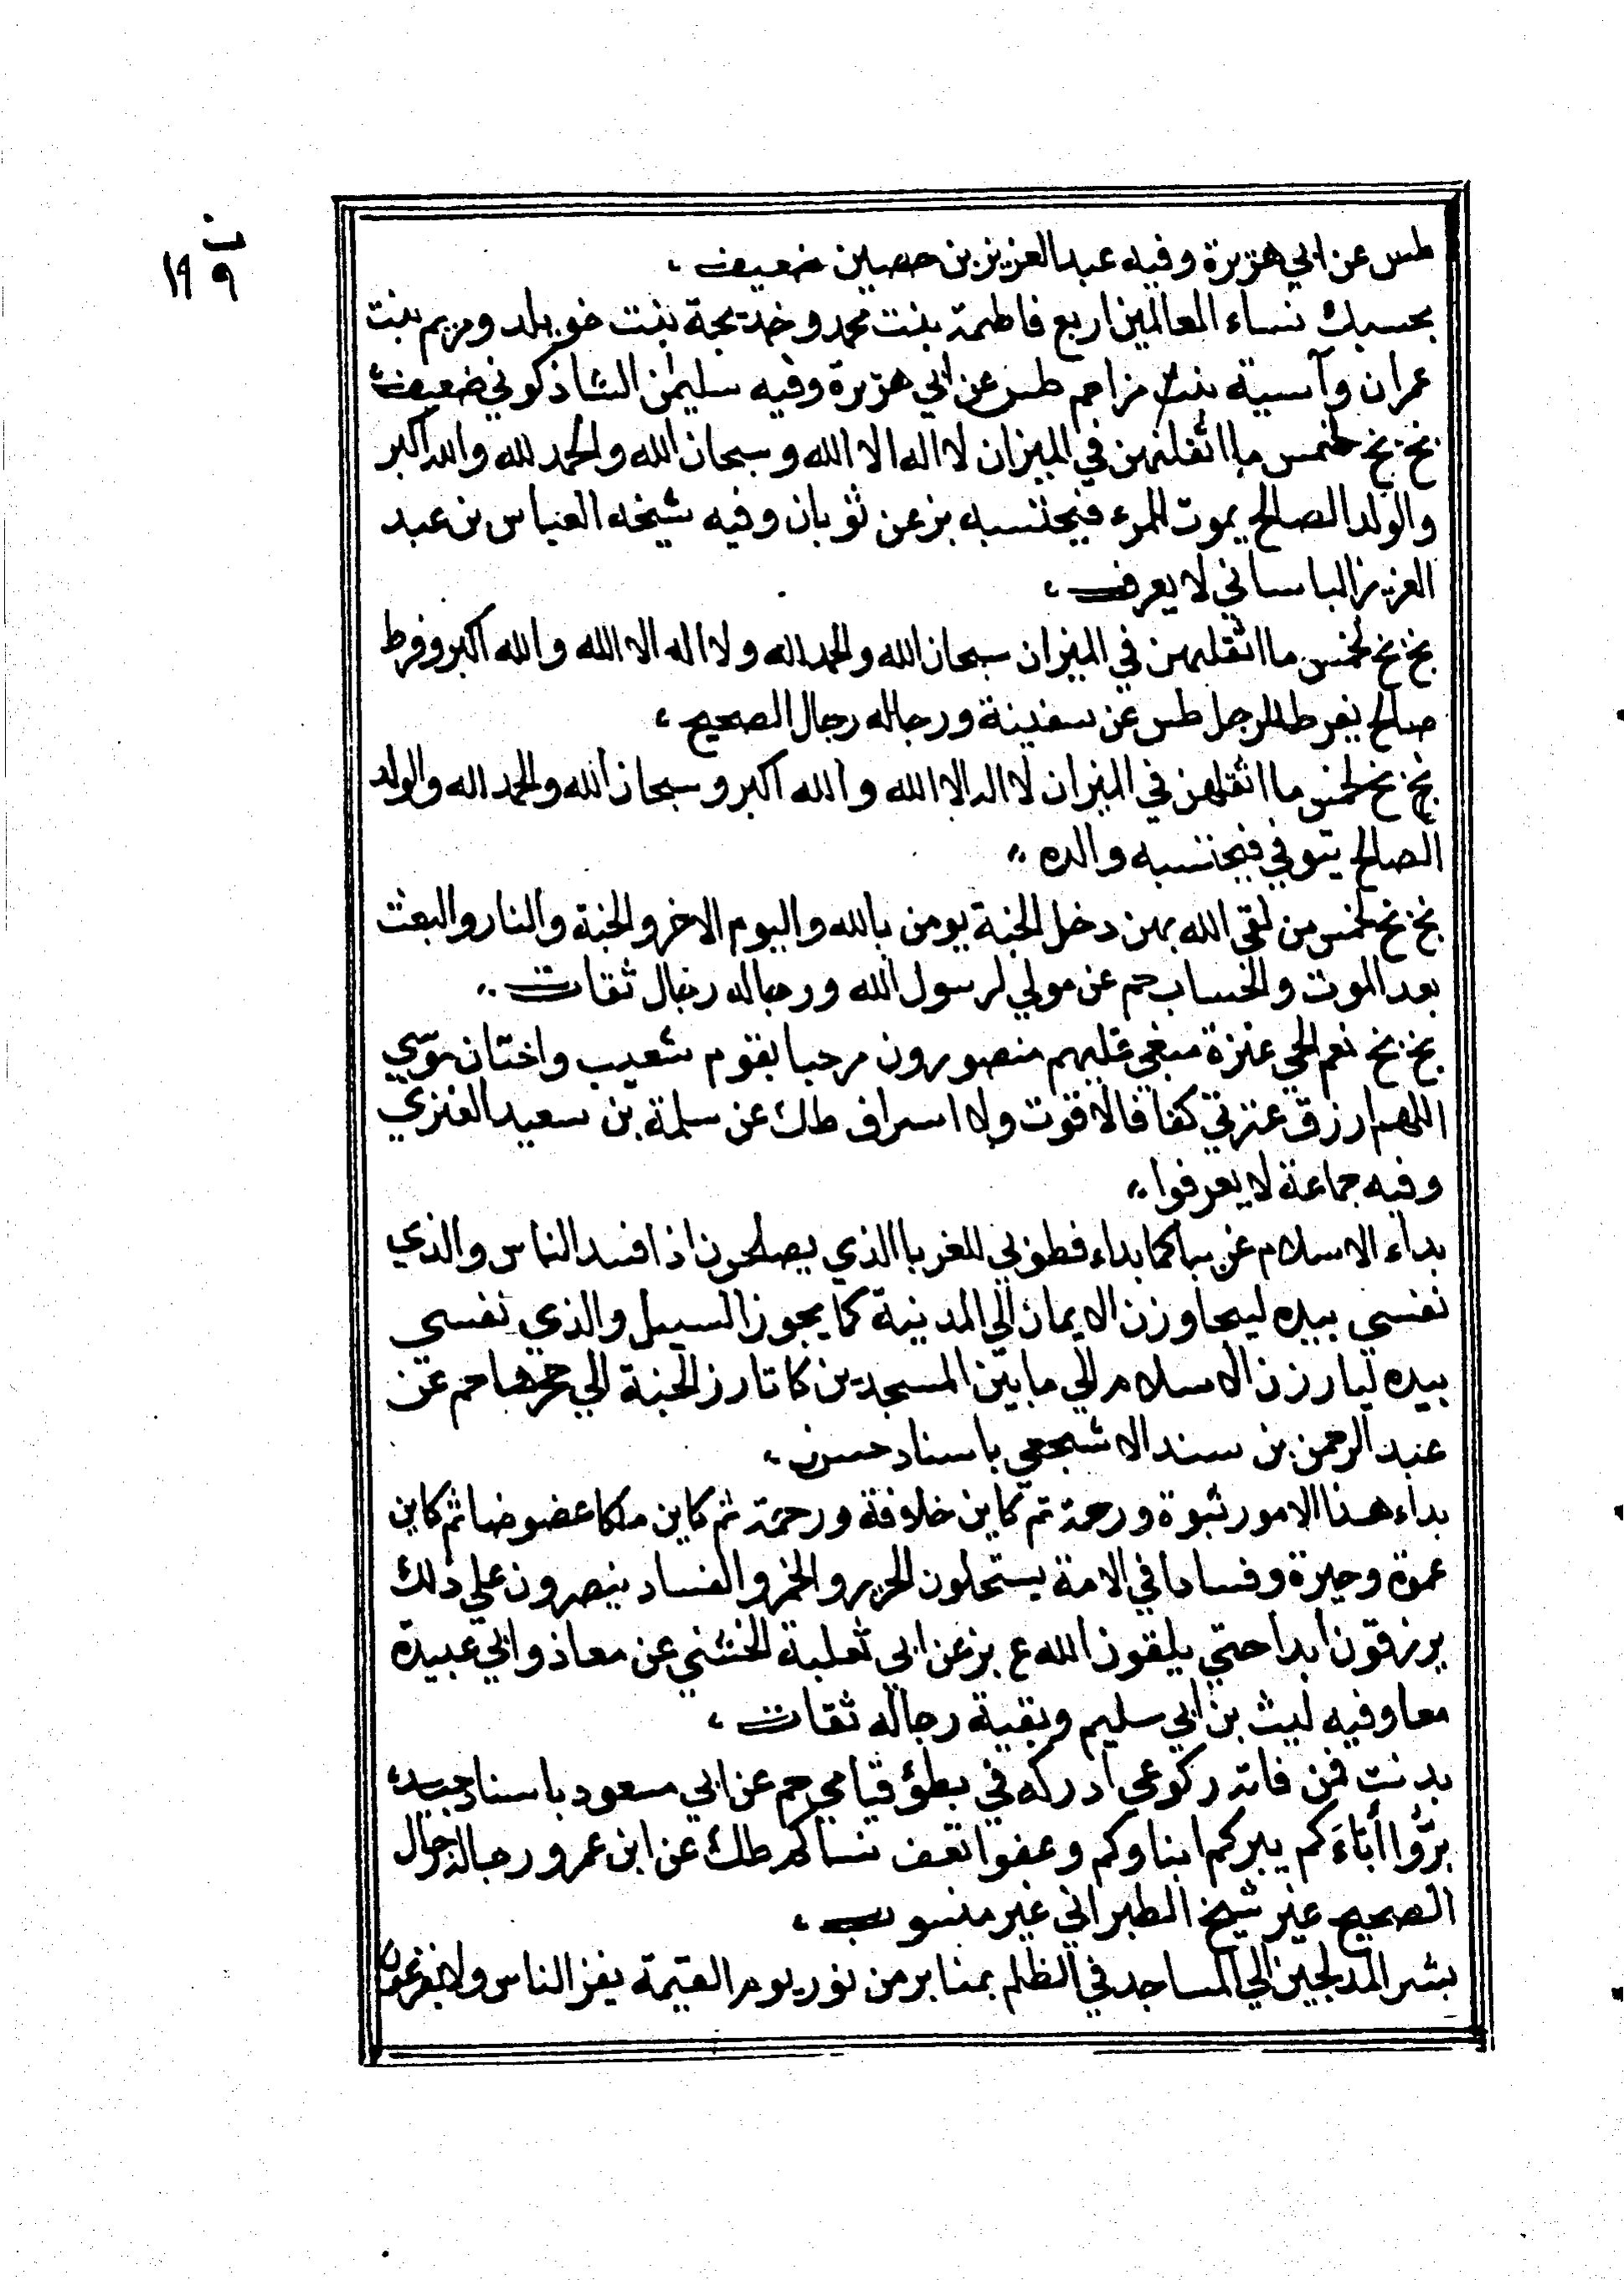 ب
٩ ١٩
طس عن ابي هريرة وفيه عبد العزيز بن حصين ضعيف ،
بحسبك نساء العالمين اربع فاطمة بنت محمد وخديجة بنت خويلد ومريم بنت
عمران وآسية بنت مزاحم طس عن ابي هريرة وفيه سليمن الشاذكوني ضعيف ،
بخ بخ لخمس ما اثقلهن في الميزان لا اله الا الله وسبحان الله والحمد لله والله اكبر
والولد الصالح يموت للمرء فيحتسبه بز عن ثوبان وفيه شيخه العباس بن عبد
العزيز الباساني لا يعرف ،
بخ بخ لخمس ما اثقلهن في الميزان سبحان الله والحمد لله ولا اله الا الله والله اكبر وفرط
صالح يفرط للرجل طس عن سفينة ورجاله رجال الصحيح ،
بخ بخ لخمس ما اثقلهن في الميزان لا اله الا الله والله اكبر وسبحان الله والحمد لله والولد
الصالح يتوفي فيحتسبه والده ،،
بخ بخ لخمس من لقي الله بهن دخل الجنة يومن بالله واليوم الاخر والجنة والنار والبعث
بعد الموت والحساب حم عن مولي لرسول الله ورجاله رجال ثقات ،،
بخ بخ نعم الحي عنزة مبغي عليهم منصورون مرحبا بقوم شعيب واختان موسي
اللهم ارزق عنزتي كفافا لا قوت ولا اسراف طك عن سلمة بن سعيد العنزي
وفيه جماعة لا يعرفوا ،،
بداء الاسلام غريبا كما بداء فطوبي للغربا الذي يصلحون اذا فسد الناس والذي
نفسي بيده ليحاوزن الايمان الي المدينة كما يجوز السيل والذي نفسي
بيده ليارزن الاسلام الي ما بين المسجدين كا تارز الحية الي جحرها حم عن
عبد الرحمن بن سند الاشجعي باسناد حسن ،
بداء هذا الامور نبوة ورحمة ثم كاين خلافة ورحمة ثم كاين ملكا عضوضا ثم كاين
عموة وحيرة وفسادا في الامة يستحلون الحرير والخمر والفساد ينصرون علي ذلك
يرزقون ابدا حتي يلقون الله ع بز عن ابي ثعلبة الخشني عن معاذ وابي عبيدة
معا وفيه ليث بن ابي سليم وبقية رجاله ثقات ،
بدنت فمن فاته ركوعي ادركه في بطؤ قيامي حم عن ابي مسعود باسناد جيد ،
برُّوا أباءَكم يبركم ابناوكم وعفوا تعف نساكم طك عن ابن عمر ورجاله رجال
الصحيح غير شيخ الطبراني غير منسوب ،
بشر المدلجين الي المساجد في الظلم بمنابر من نور يوم القيمة يفز الناس ولا يفزعون